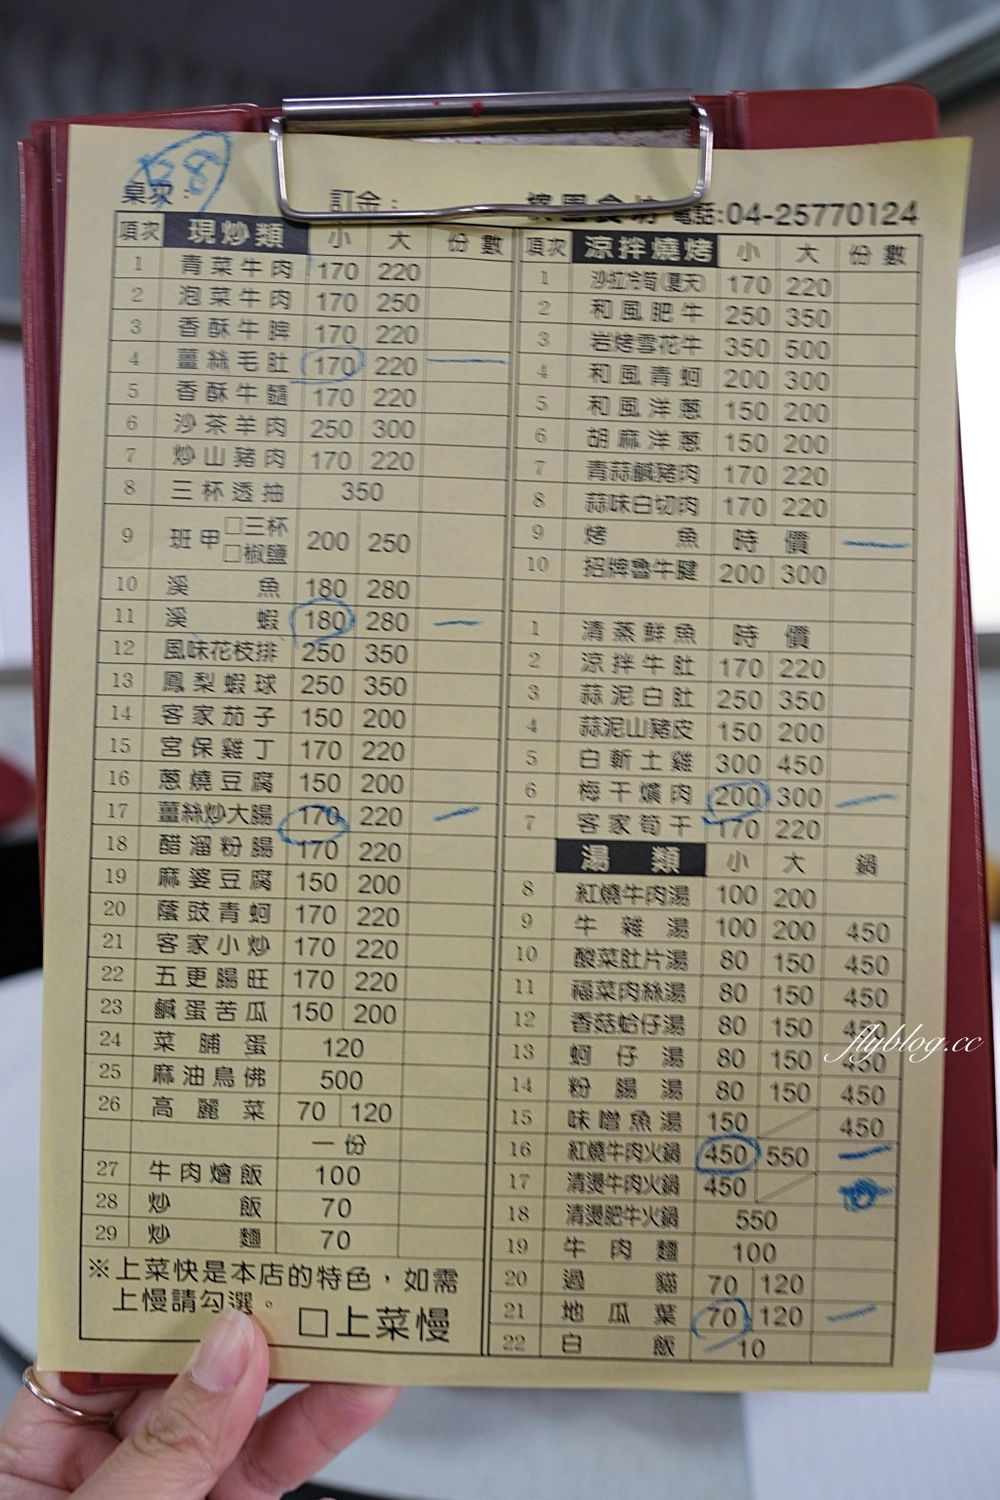 桌次：
訂金：
電話:04-25770124
項次 現炒類 小 大 份數
1 青菜牛肉 170 220
2 泡菜牛肉 170 250
3 香酥牛脾 170 220
4 薑絲毛肚 170 220 一
5 香酥牛髓 170 220
6 沙茶羊肉 250 300
7 炒山豬肉 170 220
8 三杯透抽 350
9 班甲 □三杯 □椒鹽 200 250
10 溪魚 180 280
11 溪蝦 180 280 一
12 風味花枝排 250 350
13 鳳梨蝦球 250 350
14 客家茄子 150 200
15 宮保雞丁 170 220
16 蔥燒豆腐 150 200
17 薑絲炒大腸 170 220 一
18 醋溜粉腸 170 220
19 麻婆豆腐 150 200
20 蔭豉青蚵 170 220
21 客家小炒 170 220
22 五更腸旺 170 220
23 鹹蛋苦瓜 150 200
24 菜脯蛋 120
25 麻油鳥佛 500
26 高麗菜 70 120
一份
27 牛肉燴飯 100
28 炒飯 70
29 炒麵 70
※上菜快是本店的特色，如需
上慢請勾選。 □上菜慢
項次 涼拌燒烤 小 大 份數
1 沙拉冷筍(夏天) 170 220
2 和風肥牛 250 350
3 岩烤雪花牛 350 500
4 和風青蚵 200 300
5 和風洋蔥 150 200
6 胡麻洋蔥 150 200
7 青蒜鹹豬肉 170 220
8 蒜味白切肉 170 220
9 烤魚 時價 一
10 招牌魯牛腱 200 300
1 清蒸鮮魚 時價
2 涼拌牛肚 170 220
3 蒜泥白肚 250 350
4 蒜泥山豬皮 150 200
5 白斬土雞 300 450
6 梅干爌肉 200 300 一
7 客家筍干 170 220
湯類 小 大 鍋
8 紅燒牛肉湯 100 200
9 牛雜湯 100 200 450
10 酸菜肚片湯 80 150 450
11 福菜肉絲湯 80 150 450
12 香菇蛤仔湯 80 150 450
13 蚵仔湯 80 150 450
14 粉腸湯 80 150 450
15 味噌魚湯 150 450
16 紅燒牛肉火鍋 450 550 一
17 清燙牛肉火鍋 450
18 清燙肥牛火鍋 550
19 牛肉麵 100
20 過貓 70 120
21 地瓜葉 70 120 一
22 白飯 10
flyblog.cc